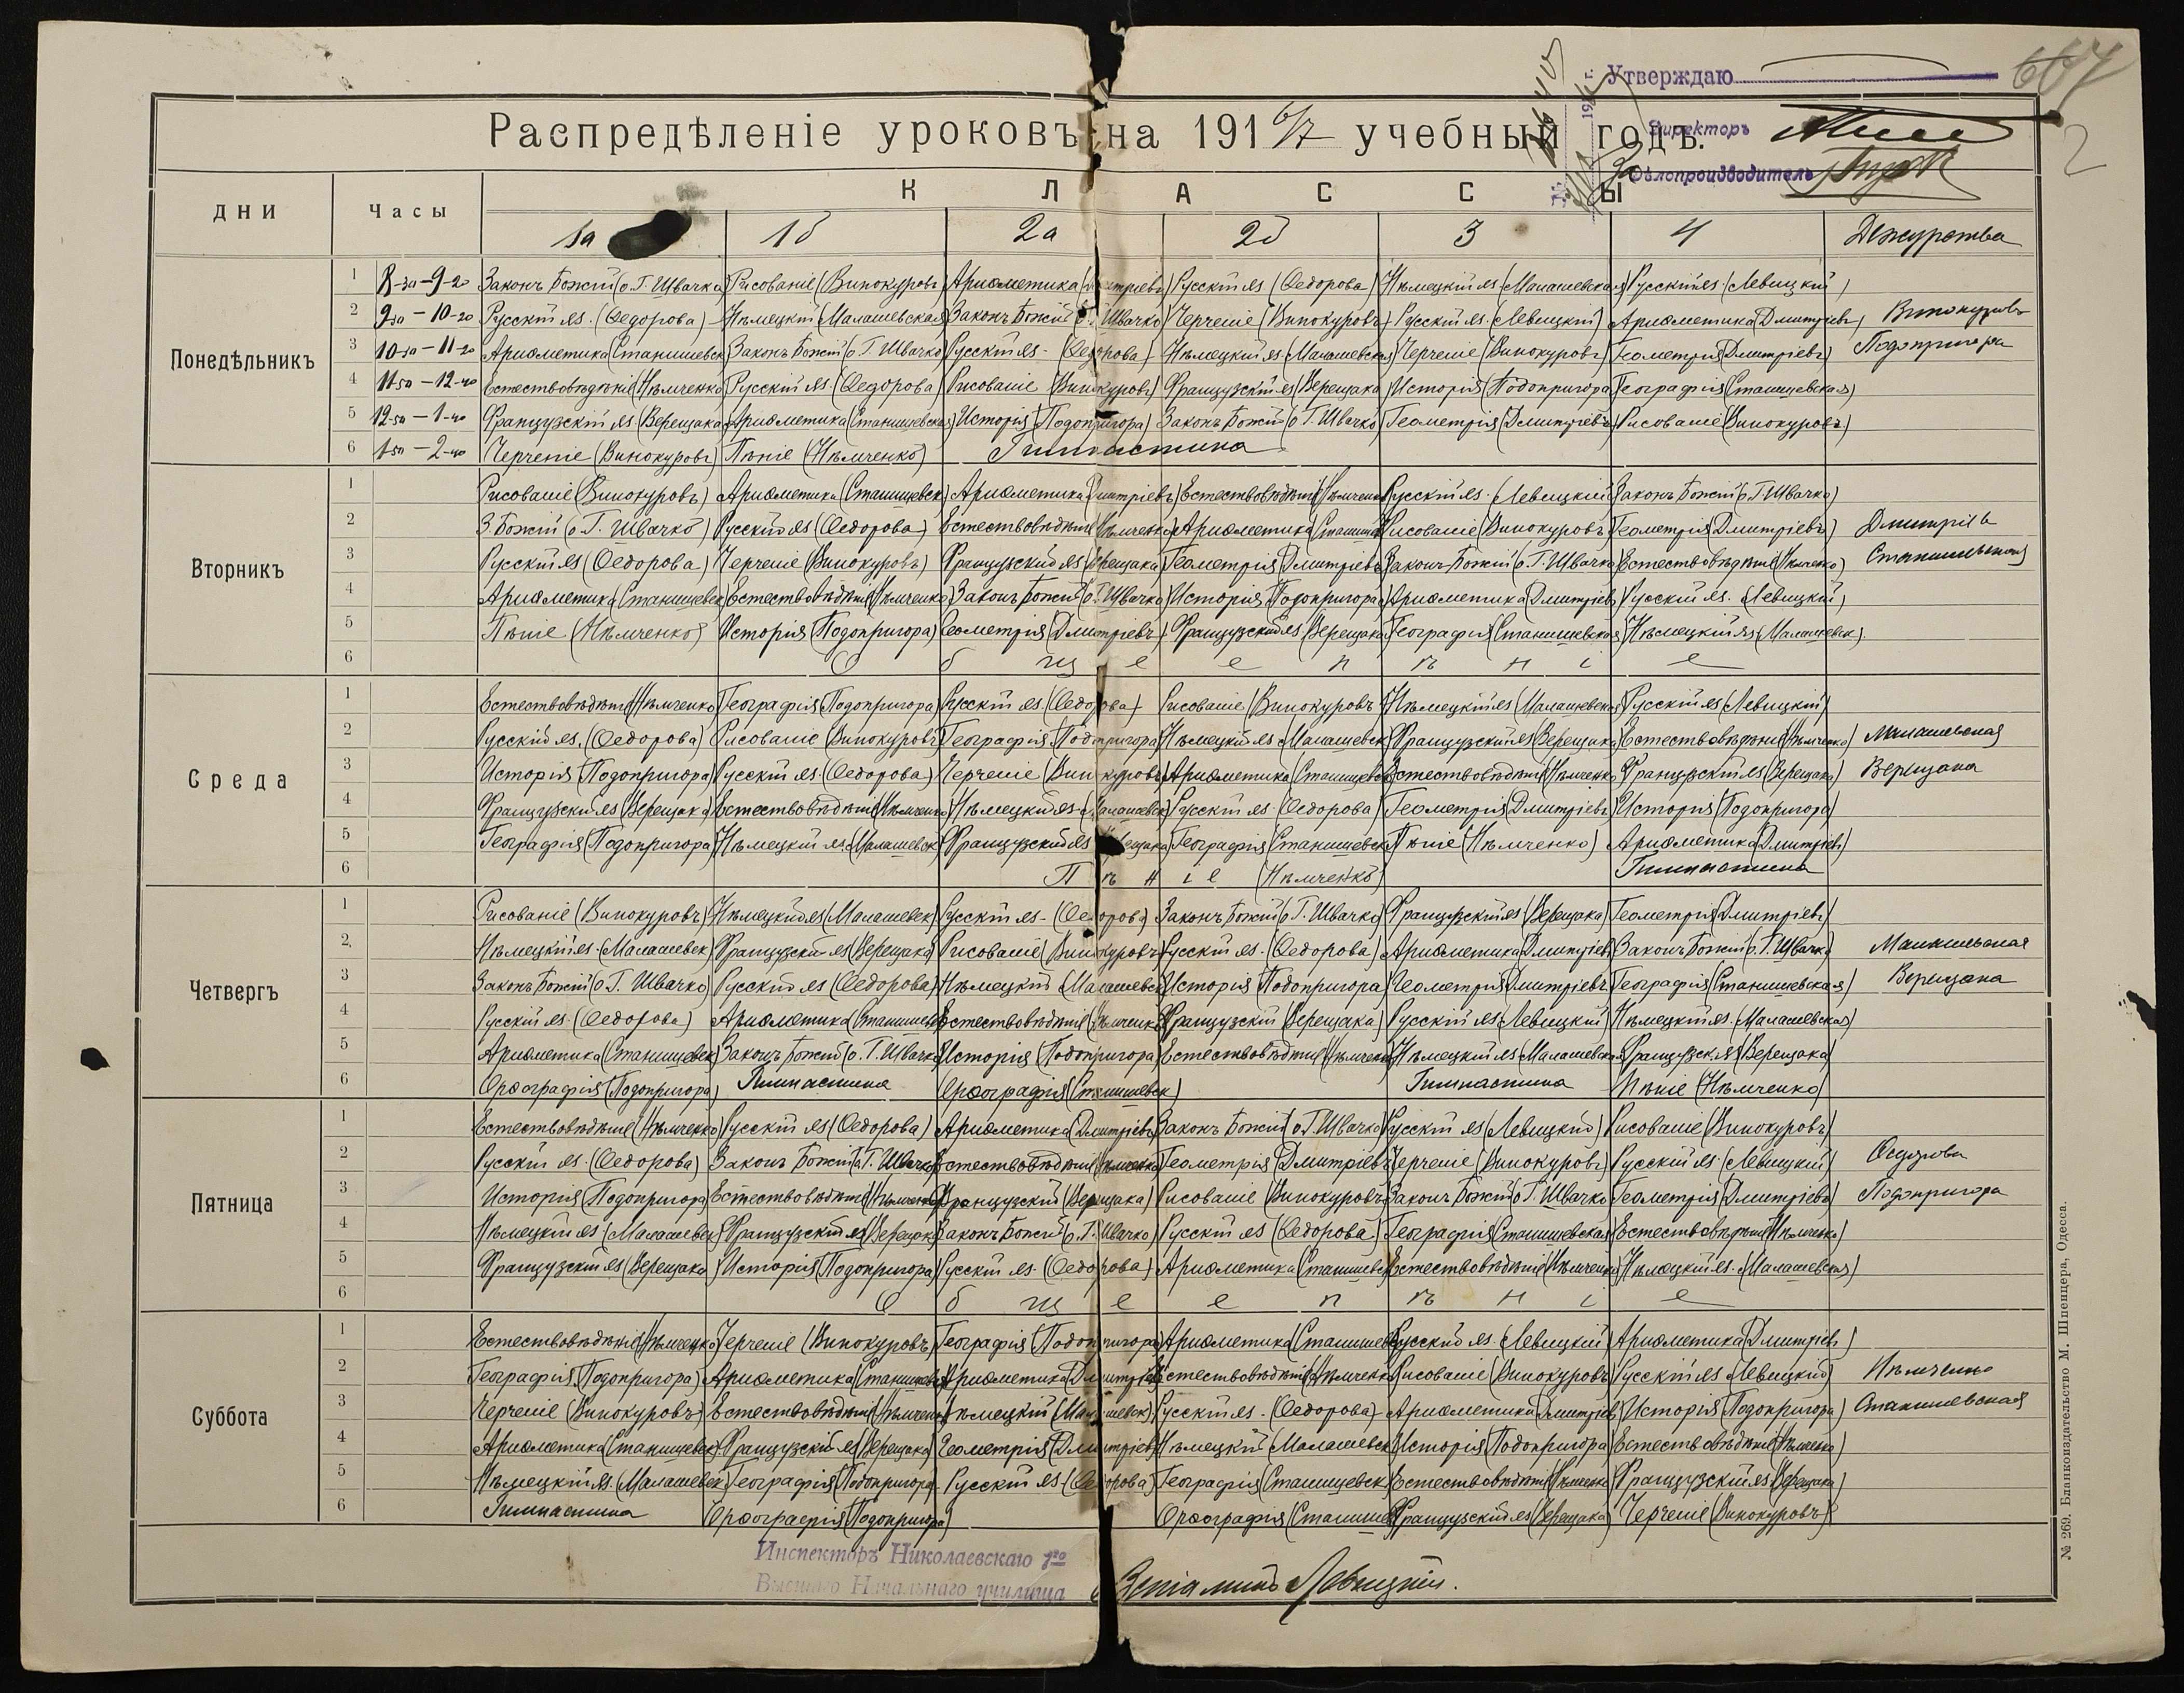 667
Утверждаю
2
Распредѣленіе уроковъ на 1916/7 учебный годъ.
Директоръ
Дѣлопроизводитель
ДНИ Часы КЛАССЫ
1а 1б 2а 2б 3 4 Дежурства
Понедѣльникъ
1 8-30-9-20 Законъ Божій (о. Г. Швачко) Рисованіе (Винокуровъ) Ариѳметика (Дмитріевъ) Русскій яз (Ѳедорова) Нѣмецкій яз (Малашевская) Русскій яз. (Левицкій)
2 9-30-10-20 Русскій яз. (Ѳедорова) Нѣмецкій (Малашевская) Законъ Божій (о. Г. Швачко) Черченіе (Винокуровъ) Русскій яз. (Левицкій) Ариѳметика (Дмитріевъ) Винокуровъ
3 10-30-11-20 Ариѳметика (Станишевск) Законъ Божій (о. Г. Швачко) Русскій яз. (Ѳедорова) Нѣмецкій яз. (Малашевская) Черченіе (Винокуровъ) Геометрія (Дмитріевъ) Подопригора
4 11-50-12-40 Естествовѣдѣніе (Нѣмченко) Русскій яз. (Ѳедорова) Рисованіе (Винокуровъ) Французскій яз (Верещака) Исторія (Подопригора) Географія (Станишевская)
5 12-50-1-40 Французскій яз (Верещака) Ариѳметика (Станишевская) Исторія (Подопригора) Законъ Божій (о. Г. Швачко) Геометрія (Дмитріевъ) Рисованіе (Винокуровъ)
6 1-50-2-40 Черченіе (Винокуровъ) Пѣніе (Нѣмченко) Гимнастика
Вторникъ
1 Рисованіе (Винокуровъ) Ариѳметика (Станишевск) Ариѳметика (Дмитріевъ) Естествовѣдѣніе (Нѣмченко) Русскій яз. (Левицкій) Законъ Божій (о. Г. Швачко)
2 З. Божій (о. Г. Швачко) Русскій яз (Ѳедорова) Естествовѣдѣніе (Нѣмченко) Ариѳметика (Станишев) Рисованіе (Винокуровъ) Геометрія (Дмитріевъ) Дмитріевъ
3 Русскій яз (Ѳедорова) Черченіе (Винокуровъ) Французскій яз (Верещака) Геометрія (Дмитріевъ) Законъ Божій (о. Г. Швачко) Естествовѣдѣніе (Нѣмченко) Станишевская
4 Ариѳметика (Станишевск) Естествовѣдѣніе (Нѣмченко) Законъ Божій (о. Г. Швачко) Исторія (Подопригора) Ариѳметика (Дмитріевъ) Русскій яз. (Левицкій)
5 Пѣніе (Нѣмченко) Исторія (Подопригора) Геометрія (Дмитріевъ) Французскій яз (Верещака) Географія (Станишевская) Нѣмецкій яз (Малашевск)
6 Общее пѣніе
Среда
1 Естествовѣдѣніе (Нѣмченко) Географія (Подопригора) Русскій яз. (Ѳедорова) Рисованіе (Винокуровъ) Нѣмецкій яз (Малашевская) Русскій яз (Левицкій)
2 Русскій яз. (Ѳедорова) Рисованіе (Винокуровъ) Географія (Подопригора) Нѣмецкій яз (Малашевск) Французскій яз (Верещака) Естествовѣдѣніе (Нѣмченко) Малашевская
3 Исторія (Подопригора) Русскій яз. (Ѳедорова) Черченіе (Винокуровъ) Ариѳметика (Станишевск) Естествовѣдѣніе (Нѣмченко) Французскій яз (Верещака) Верещака
4 Французскій яз (Верещака) Естествовѣдѣніе (Нѣмченко) Нѣмецкій яз (Малашевск) Русскій яз (Ѳедорова) Геометрія (Дмитріевъ) Исторія (Подопригора)
5 Географія (Подопригора) Нѣмецкій яз. (Малашевск) Французскій яз (Верещака) Географія (Станишевск) Пѣніе (Нѣмченко) Ариѳметика (Дмитріевъ)
6 Пѣніе (Нѣмченко) Гимнастика
Четвергъ
1 Рисованіе (Винокуровъ) Нѣмецкій яз (Малашевск) Русскій яз. (Ѳедорова) Законъ Божій (о. Г. Швачко) Французскій яз (Верещака) Геометрія (Дмитріевъ)
2 Нѣмецкій яз. (Малашевск) Французскій яз (Верещака) Рисованіе (Винокуровъ) Русскій яз. (Ѳедорова) Ариѳметика (Дмитріевъ) Законъ Божій (о. Г. Швачко) Малашевская
3 Законъ Божій (о. Г. Швачко) Русскій яз (Ѳедорова) Нѣмецкій (Малашевск) Исторія (Подопригора) Геометрія (Дмитріевъ) Географія (Станишевская) Верещака
4 Русскій яз. (Ѳедорова) Ариѳметика (Станишев) Естествовѣдѣніе (Нѣмченко) Французскій (Верещака) Русскій яз (Левицкій) Нѣмецкій яз. (Малашевская)
5 Ариѳметика (Станишевск) Законъ Божій (о. Г. Швачко) Исторія (Подопригора) Естествовѣдѣніе (Нѣмченко) Нѣмецкій яз (Малашевская) Французск. яз (Верещака)
6 Орѳографія (Подопригора) Гимнастика Орѳографія (Станишевск) Гимнастика Пѣніе (Нѣмченко)
Пятница
1 Естествовѣдѣніе (Нѣмченко) Русскій яз (Ѳедорова) Ариѳметика (Дмитріевъ) Законъ Божій (о. Г. Швачко) Русскій яз (Левицкій) Рисованіе (Винокуровъ)
2 Русскій яз. (Ѳедорова) Законъ Божій (о. Г. Швачко) Естествовѣдѣніе (Нѣмченко) Геометрія (Дмитріевъ) Черченіе (Винокуровъ) Русскій яз. (Левицкій) Ѳедорова
3 Исторія (Подопригора) Естествовѣдѣніе (Нѣмченко) Французскій (Верещака) Рисованіе (Винокуровъ) Законъ Божій (о. Г. Швачко) Геометрія (Дмитріевъ) Подопригора
4 Нѣмецкій яз (Малашевск) Французскій яз (Верещака) Законъ Божій (о. Г. Швачко) Русскій яз (Ѳедорова) Географія (Станишевская) Естествовѣдѣніе (Нѣмченко)
5 Французскій яз (Верещака) Исторія (Подопригора) Русскій яз. (Ѳедорова) Ариѳметика (Станишевск) Естествовѣдѣніе (Нѣмченко) Нѣмецкій яз. (Малашевская)
6 Общее пѣніе
Суббота
1 Естествовѣдѣніе (Нѣмченко) Черченіе (Винокуровъ) Географія (Подопригора) Ариѳметика (Станишев) Русскій яз. (Левицкій) Ариѳметика (Дмитріевъ)
2 Географія (Подопригора) Ариѳметика (Станишев) Ариѳметика (Дмитріевъ) Естествовѣдѣніе (Нѣмченко) Рисованіе (Винокуровъ) Русскій яз (Левицкій) Нѣмченко
3 Черченіе (Винокуровъ) Естествовѣдѣніе (Нѣмченко) Нѣмецкій (Малашевск) Русскій яз. (Ѳедорова) Ариѳметика (Дмитріевъ) Исторія (Подопригора) Станишевская
4 Ариѳметика (Станишевск) Французскій яз (Верещака) Геометрія (Дмитріевъ) Нѣмецкій (Малашевск) Исторія (Подопригора) Естествовѣдѣніе (Нѣмченко)
5 Нѣмецкій яз. (Малашевск) Географія (Подопригора) Русскій яз. (Ѳедорова) Географія (Станишевск) Естествовѣдѣніе (Нѣмченко) Французскій яз (Верещака)
6 Гимнастика Орѳографія (Подопригора) Орѳографія (Станишев) Французскій яз (Верещака) Черченіе (Винокуровъ)
Инспекторъ Николаевскаго 1го
Высшаго Начальнаго училища Веніаминъ Левицкій.
№ 269. Бланкоиздательство М. Шпенцера, Одесса.